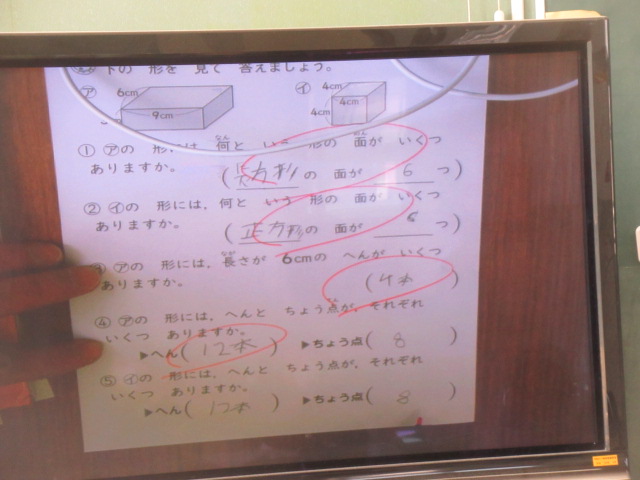 下の 形を 見て 答えましょう。
㋐ 6cm 9cm
㋑ 4cm 4cm 4cm
① ㋐の 形には 何と いう 形の 面が いくつ
ありますか。
(長方形の 面が 6つ)
② ㋑の 形には、何と いう 形の 面が いくつ
ありますか。
(正方形の 面が 6つ)
㋐の 形には、長さが 6cmの へんが いくつ
ありますか。
(4本)
④ ㋐の 形には、へんと ちょう点が、それぞれ
いくつ ありますか。
▶へん(12本) ▶ちょう点(8)
⑤ ㋑の 形には、へんと ちょう点が、それぞれ
いくつ ありますか。
▶へん(12本) ▶ちょう点(8)